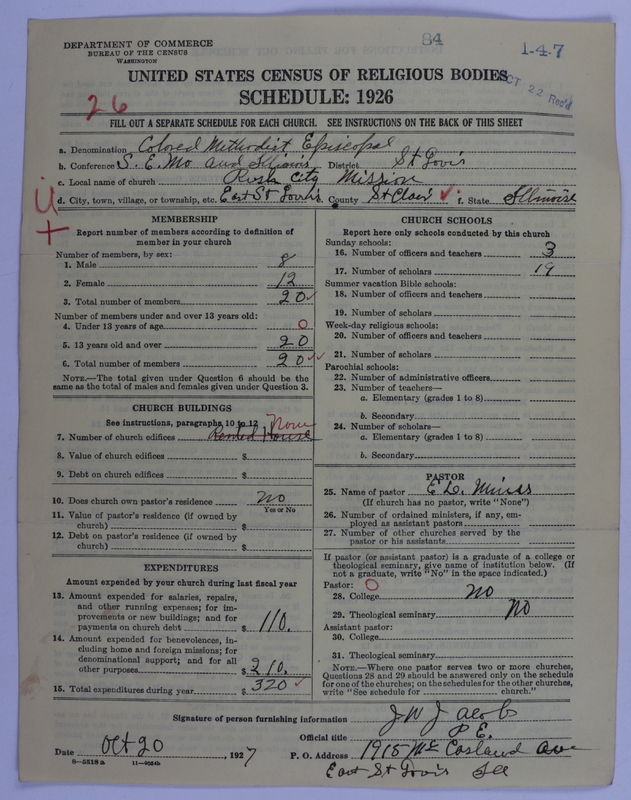 84
1-4-7
DEPARTMENT OF COMMERCE
BUREAU OF THE CENSUS
WASHINGTON
UNITED STATES CENSUS OF RELIGIOUS BODIES
OCT 22 Rec'd
SCHEDULE: 1926
26
FILL OUT A SEPARATE SCHEDULE FOR EACH CHURCH. SEE INSTRUCTIONS ON THE BACK OF THIS SHEET
a. Denomination Colored Methodist Episcopal
b. Conference S. E. Mo and Illinois District St Lovis
c. Local name of church Rush City Mission
d. City, town, village, or township, etc. East St Lovis County St Clair f. State Illinoise
MEMBERSHIP
Report number of members according to definition of
member in your church
Number of members, by sex:
1. Male 8
2. Female 12
3. Total number of members 20
Number of members under and over 13 years old:
4. Under 13 years of age 0
5. 13 years old and over 20
6. Total number of members 20
NOTE.—The total given under Question 6 should be the
same as the total of males and females given under Question 3.
CHURCH BUILDINGS
See instructions, paragraphs 10 to 12
None
7. Number of church edifices Rented House
8. Value of church edifices $
9. Debt on church edifices $
10. Does church own pastor's residence no
Yes or No
11. Value of pastor's residence (if owned by
church) $
12. Debt on pastor's residence (if owned by
church) $
EXPENDITURES
Amount expended by your church during last fiscal year
13. Amount expended for salaries, repairs,
and other running expenses; for im-
provements or new buildings; and for
payments on church debt $ 110.
14. Amount expended for benevolences, in-
cluding home and foreign missions; for
denominational support; and for all
other purposes $ 210.
15. Total expenditures during year $ 320
CHURCH SCHOOLS
Report here only schools conducted by this church
Sunday schools:
16. Number of officers and teachers 3
17. Number of scholars 19
Summer vacation Bible schools:
18. Number of officers and teachers
19. Number of scholars
Week-day religious schools:
20. Number of officers and teachers
21. Number of scholars
Parochial schools:
22. Number of administrative officers
23. Number of teachers—
a. Elementary (grades 1 to 8)
b. Secondary
24. Number of scholars—
a. Elementary (grades 1 to 8)
b. Secondary
PASTOR
25. Name of pastor
(If church has no pastor, write "None")
26. Number of ordained ministers, if any, em-
ployed as assistant pastors
27. Number of other churches served by the
pastor or his assistants
If pastor (or assistant pastor) is a graduate of a college or
theological seminary, give name of institution below. (If
not a graduate, write "No" in the space indicated.)
Pastor: 0
28. College no
29. Theological seminary No
Assistant pastor:
30. College
31. Theological seminary
NOTE.—Where one pastor serves two or more churches,
Questions 28 and 29 should be answered only on the schedule
for one of the churches; on the schedules for the other churches,
write "See schedule for church."
Signature of person furnishing information J W Jacobs
Official title P. E.
Date Oct 20, 1927 P. O. Address 1915 Mc Casland ave
8—5518a
East St Lovis Ill